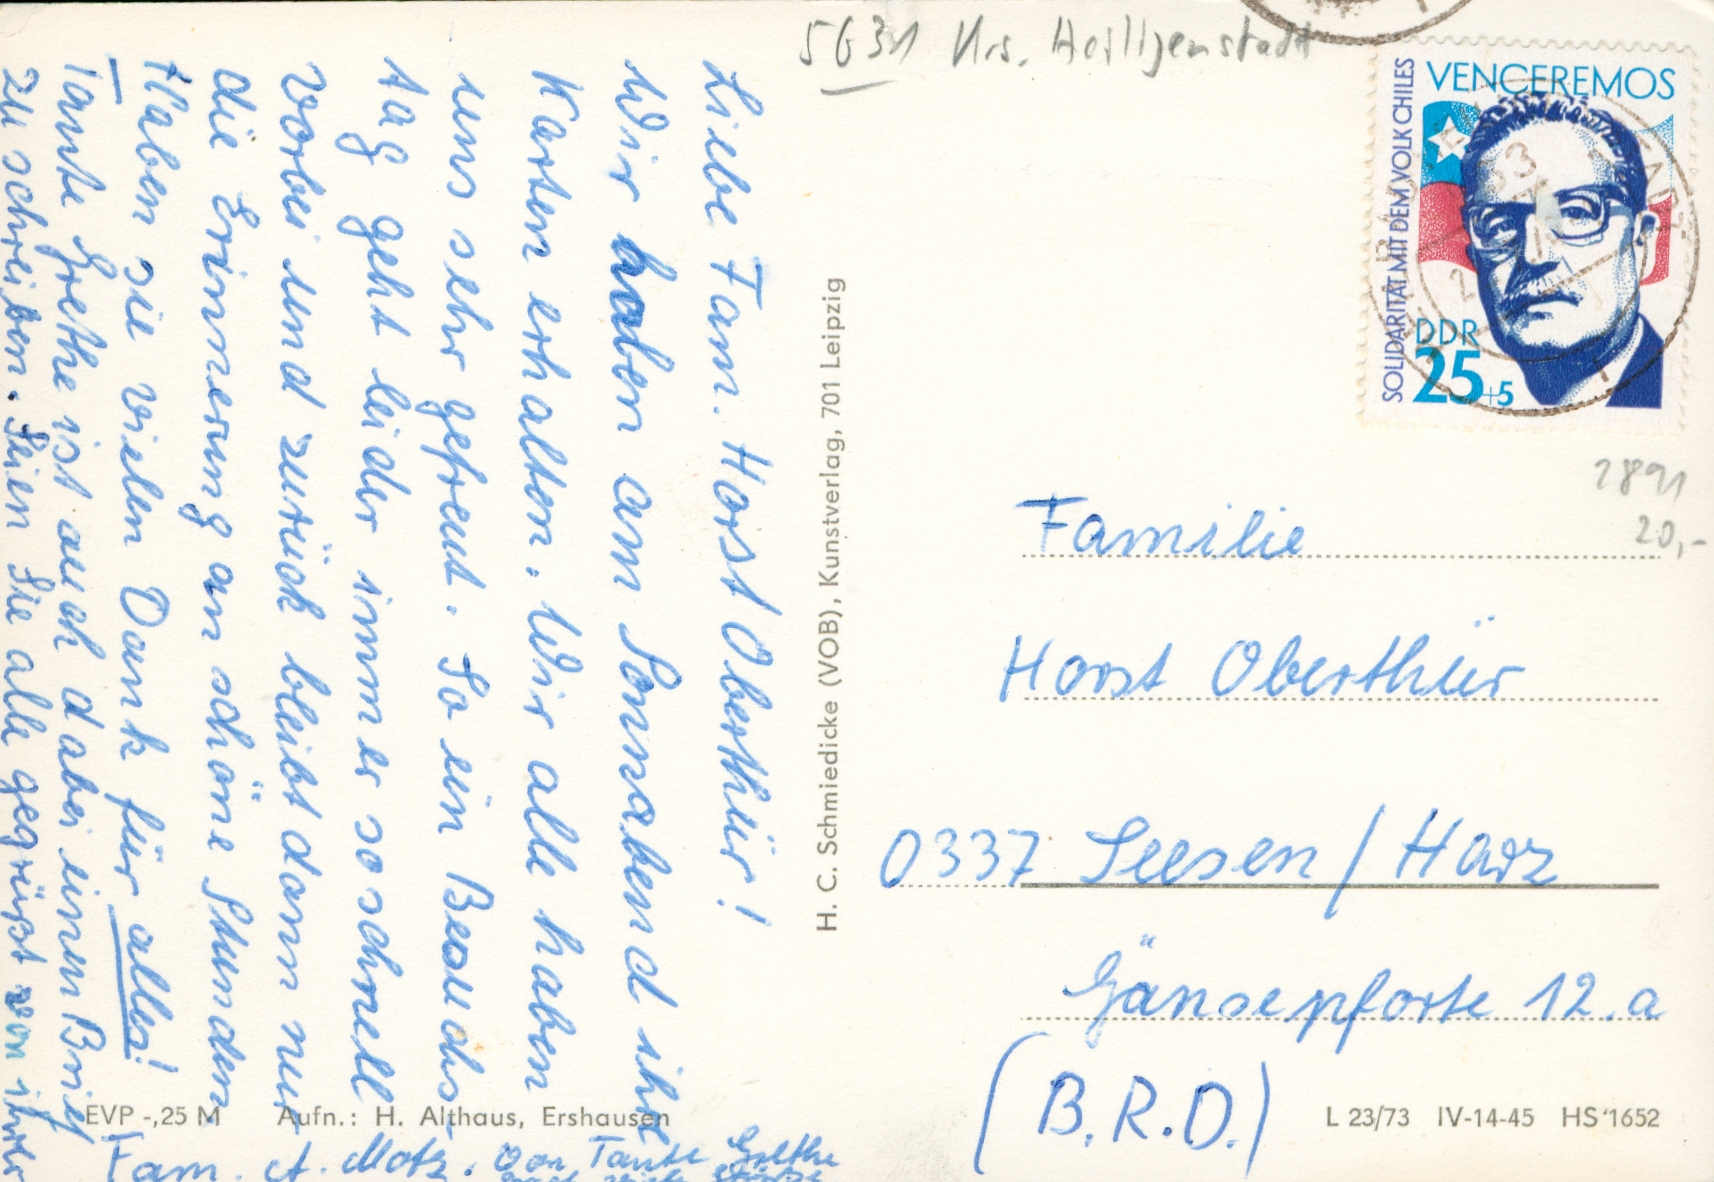 5631 Krs. Heiligenstadt
VENCEREMOS
SOLIDARITÄT MIT DEM VOLK CHILES
DDR
25+5
2891
20,-
Familie
Horst Oberthür
0337 Seesen / Harz
Gänsepforte 12.a
(B.R.D.)
L 23/73 IV-14-45 HS 1652
H. C. Schmiedicke (VOB), Kunstverlag, 701 Leipzig
Liebe Fam. Horst Oberthür!
Wir haben am Sonnabend ihre
Karten erhalten. Wir alle haben
uns sehr gefreut. So ein Besuchs
tag geht leider immer so schnell
vorbei und zurück bleibt dann nur
die Erinnerung an schöne Stunden
Haben sie vielen Dank für alles!
Tante Grethe ist auch dabei einen Brief
zu schreiben. Seien Sie alle gegrüßt von ihrer
Fam. A. Motz. Von Tante Grethe
EVP -,25 M Aufn.: H. Althaus, Ershausen